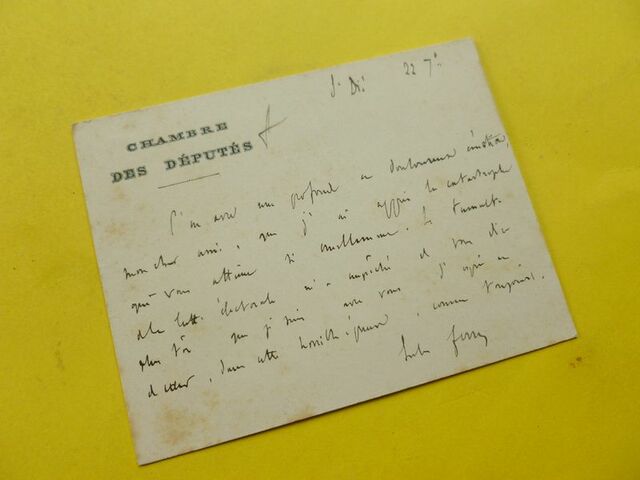 St Dié 22 7bre
CHAMBRE
DES DÉPUTÉS
C'est avec une profonde et douloureuse émotion,
mon cher ami, que j'ai appris la catastrophe
qui vous atteint si cruellement. Le tumulte
de la lutte électorale m'a empêché de vous dire
plus tôt que je suis avec vous, d'esprit et
de cœur, dans cette horrible épreuve, comme toujours.
Jules Ferry